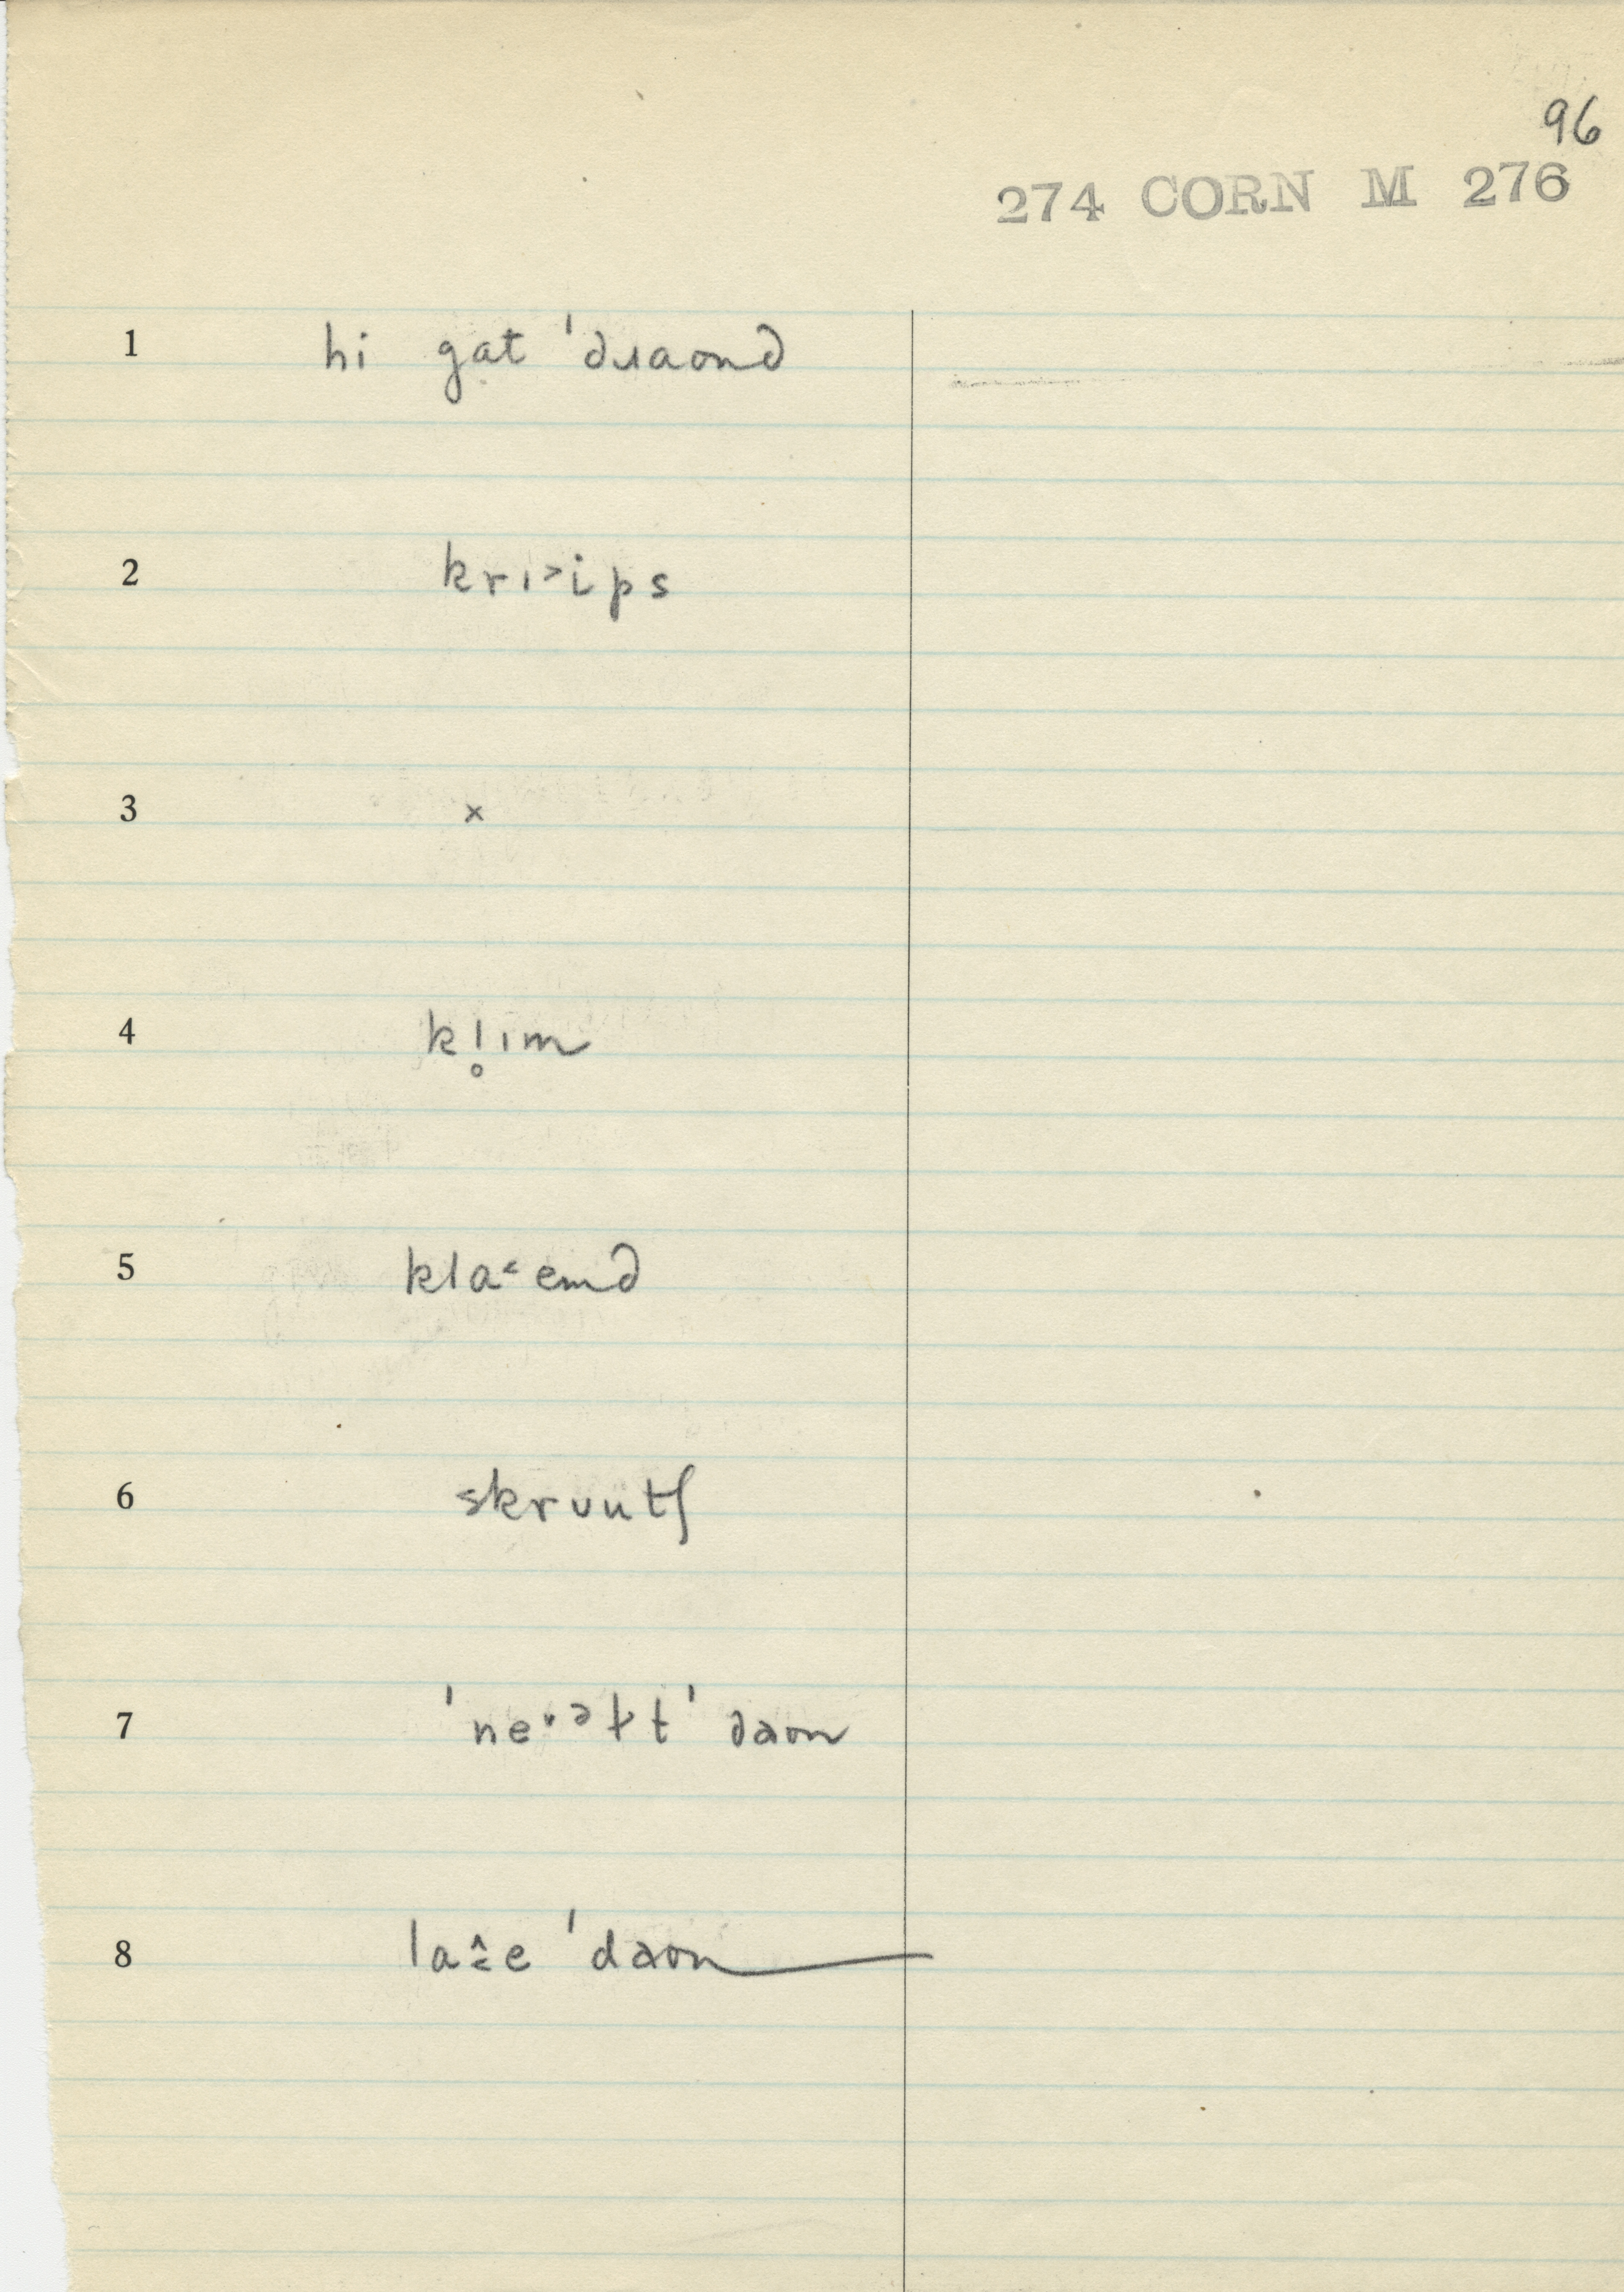 96
274 CORN M 276
1 hi gat ˈdɹaond
2 krɪ˃ips
3 x
4 kl̥ɪm
5 kla˂emd
6 skrʊutʃ
7 ˈne˅ᵊɫt ˈdaon
8 la˄̱e ˈdaon